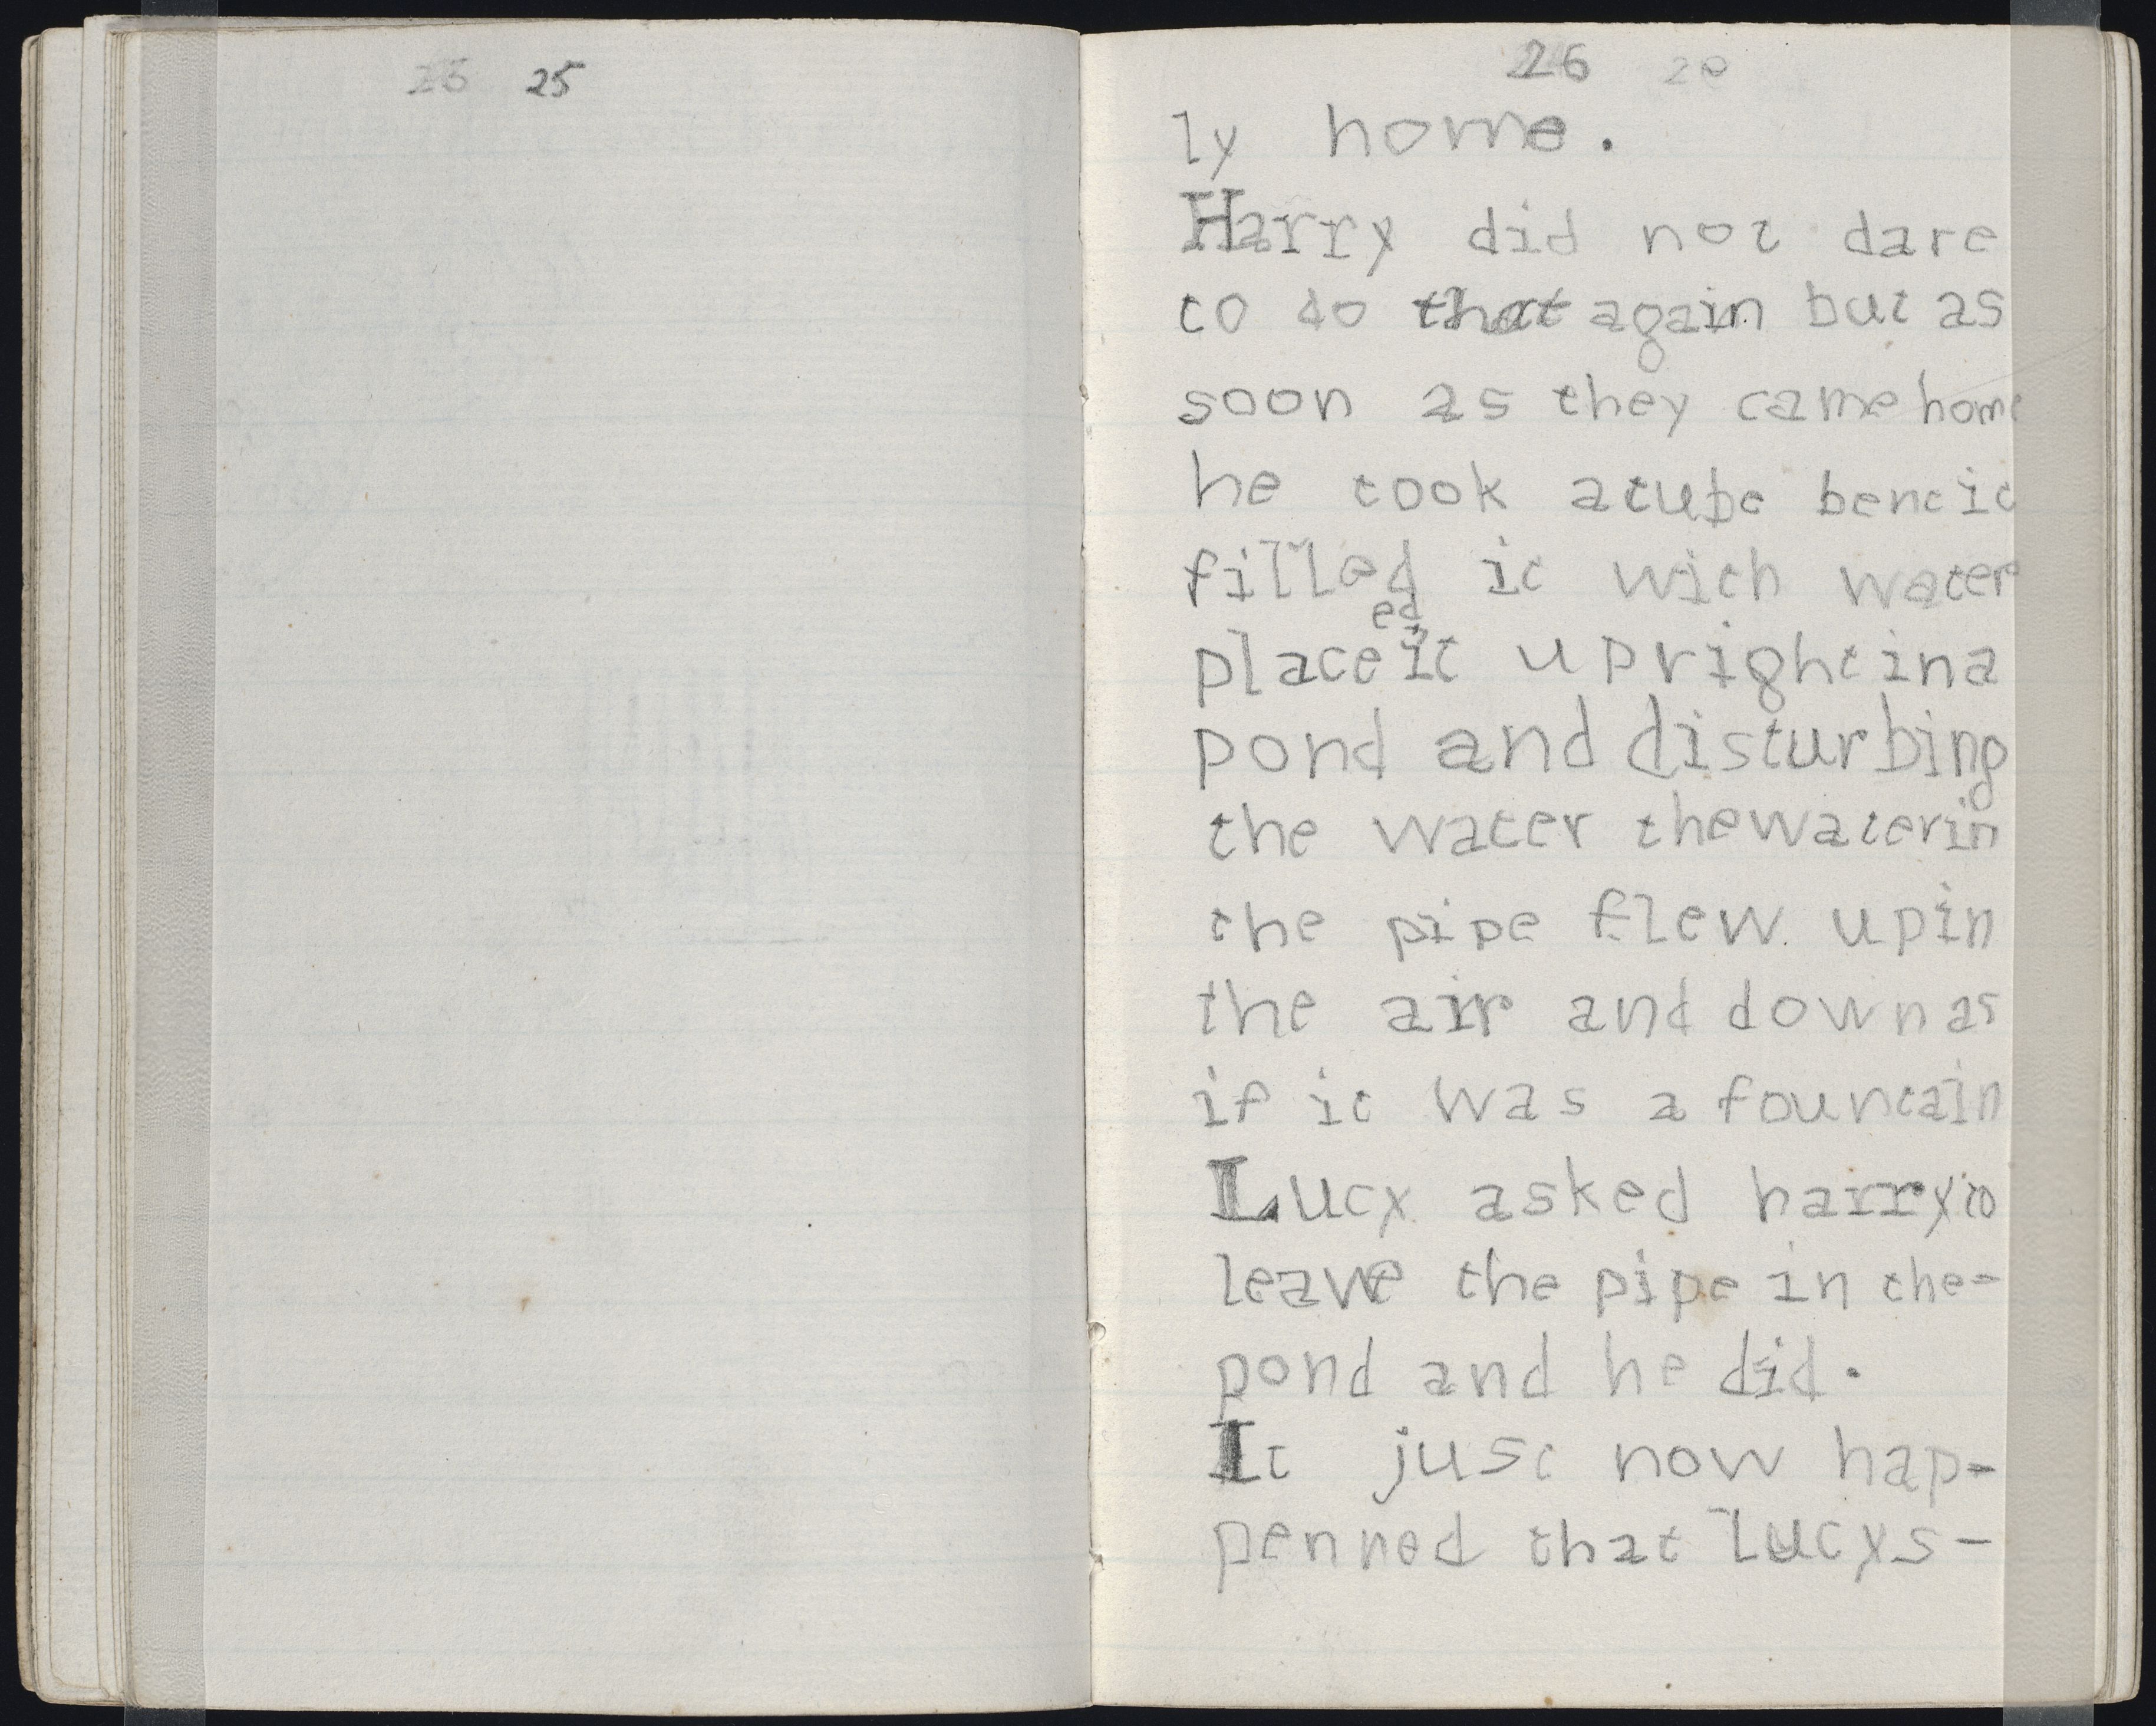 25
26
ly home.
Harry did not dare
to do that again but as
soon as they came home
he took a tube bent it
filled it with water
ed
place it upright in a
pond and disturbing
the water the water in
the pipe flew up in
the air and down as
if it was a fountain
Lucy asked harry to
leave the pipe in the-
pond and he did.
It just now hap-
penned that Lucys-